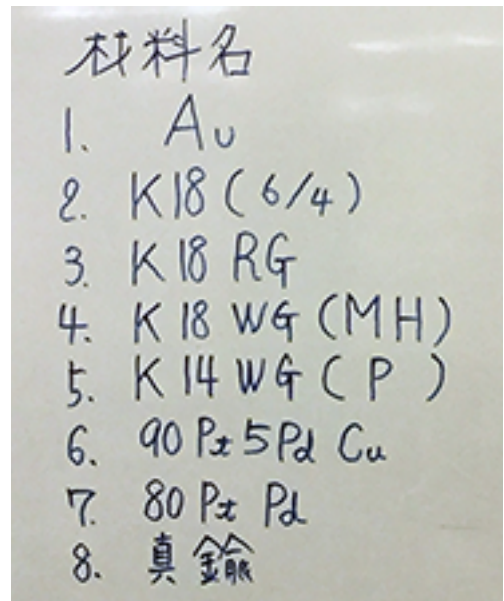 材料名
1. Au
2. K18(6/4)
3. K18 RG
4. K18 WG(MH)
5. K14 WG(P)
6. 90Pt5Pd Cu
7. 80Pt Pd
8. 真鍮